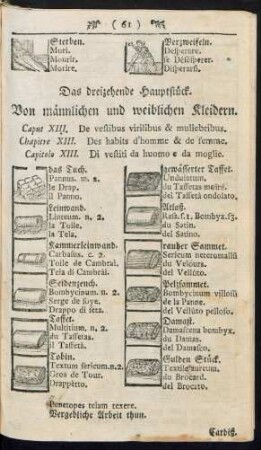 ( 61 )
Sterben.
Mori.
Mourir.
Morire.
Verzweifeln.
Desperare.
se Désésperer.
Disperarsi.
Das dreizehende Hauptstück.
Von männlichen und weiblichen Kleidern.
Caput XIII. De vestibus virilibus & muliebribus.
Chapitre XIII. Des habits d'homme & de femme.
Capitolo XIII. Di vestiti da huomo e da moglie.
das Tuch.
Pannus. m. 2.
le Drap.
il Panno.
Leinwand.
Linteum. n. 2.
la Toile.
la Tela.
Kammerleinwand.
Carbasus. c. 2.
Toile de Cambral.
Tela di Cambral.
Seidenzeuch.
Bombycinum. n. 2.
Serge de soye.
Drappo di seta.
Taffet.
Multitium. n. 2.
du Taffetas.
il Taffetà.
Tobin.
Textum sericum. n. 2.
Gros de Tour.
Drappètto.
gewässerter Taffet.
Undulatum.
du Taffetas moiré.
del Taffetà ondolato.
Atlaß.
du Satin.
del Satino.
rauher Sammet.
Sericum heteromallum
du Velours.
del Vellùto.
Pelzsammet.
Bombycinum villosũ
de la Panne.
del Vellùto pelloso.
Damast.
Damascena bombyx.
du Damas.
del Damasco.
Gulden Stück.
Textile aureum.
du Brocard.
del Brocato.
Penelopes telam texere.
Vergebliche Arbeit thun.